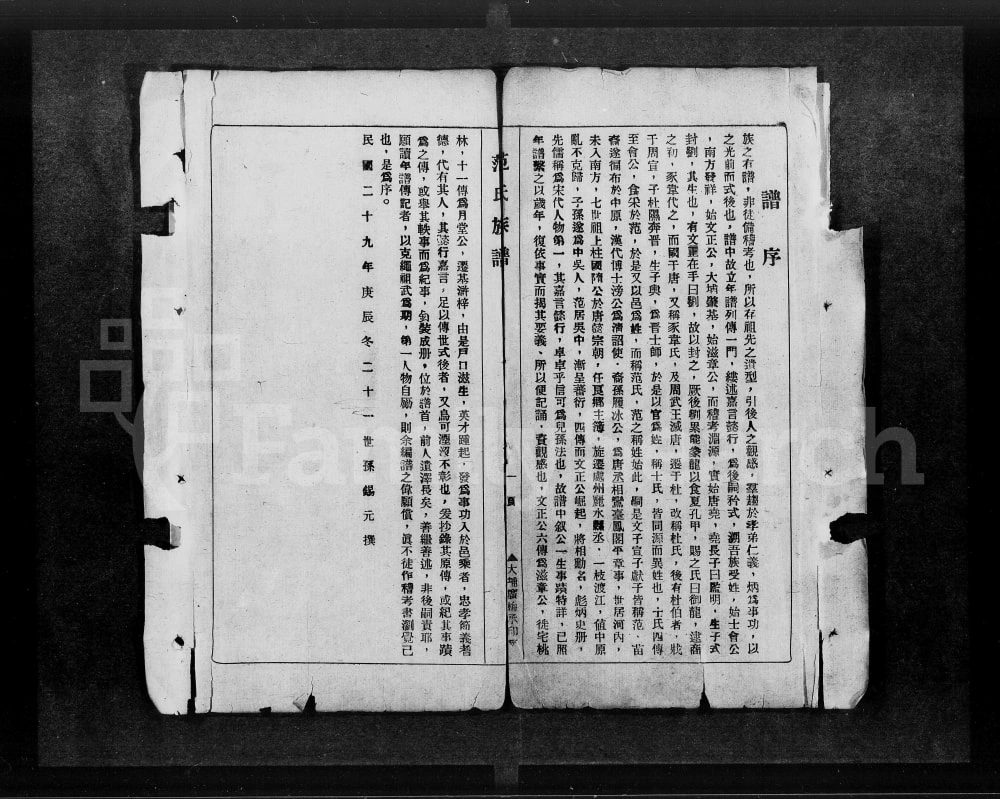 譜序
族之有譜，非徒備稽考也，所以存祖先之遺型，引後人之觀感，羣趨於孝弟仁義，炳爲事功，以
之光前而式後也，譜中故立年譜列傳一門，縷述嘉言懿行，爲後嗣矜式，溯吾族受姓，始士會公
，南方發祥，始文正公，大埔肇基，始滋章公，而稽考淵源，實始唐堯，堯長子曰監明，生子式
封劉，其生也，有文在手曰劉，故以封之，厥後劉累能豢龍以食夏孔甲，賜之氏曰御龍，逮商
之初，豕韋代之，而國于唐，又稱豕韋氏，及周武王滅唐，遷于杜，改稱杜氏，後有杜伯者，戕
于周宣，子杜隰奔晋，生子輿，爲晋士師，於是以官爲姓，稱士氏，皆同源而異姓也，士氏四傳
至會公，食采於范，於是又以邑爲姓，而稱范氏，范之稱姓始此，嗣是文子宣子獻子皆稱范，苗
裔遂徧布於中原，漢代博士滂公爲清詔使，裔孫履冰公，爲唐丞相鸞臺鳳閣平章事，世居河內，
未入南方，七世祖上柱國隋公於唐懿宗朝，任良鄉主簿，旋遷處州麗水縣丞，一枝渡江，值中原
亂不克歸，子孫遂爲中吳人，范居吳中，漸呈蕃衍，四傳而文正公崛起，將相勳名，彪炳史册，
先儒稱爲宋代人物第一，其嘉言懿行，卓卓乎信可爲兒孫法也，故譜中叙公一生事蹟特詳，已照
年譜繫之以歲年，復依事實而揭其要義、所以便記誦，資觀感也，文正公六傳爲滋章公，徙宅桃
范氏族譜
一頁
▲大埔承印
林，十一傳爲月堂公，遷基滸梓，由是戶口滋生，英才踵起，發爲事功入於邑乘者，忠孝節義者
德，代有其人，其懿行嘉言，足以傳世式後者，又烏可湮沒不彰也，爰抄錄其原傳，或紀其事蹟
爲之傳，或舉其軼事而爲紀事，裝成册，位於譜首，前人遺澤長矣，善繼善述，非後嗣責耶，
願讀年譜傳記者，以克繩祖武爲期，第一人物自勵，則余編譜之偉願償，眞不徒作稽考書瀏覽已
也，是爲序。
民國二十九年庚辰冬二十一世孫錫元撰